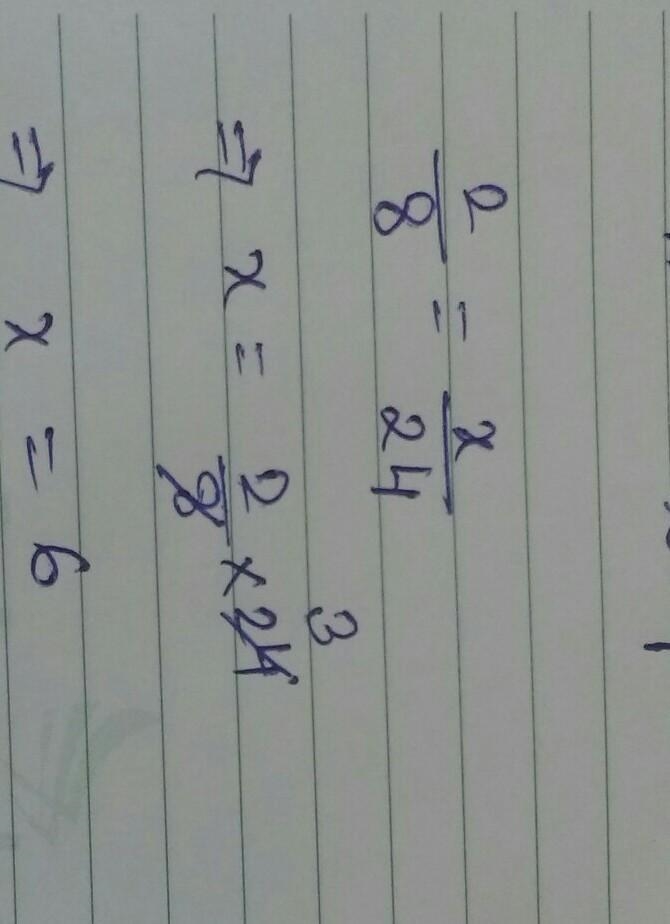 2/8 = x/24
⇒ x = 2/8 × 24 3
⇒ x = 6